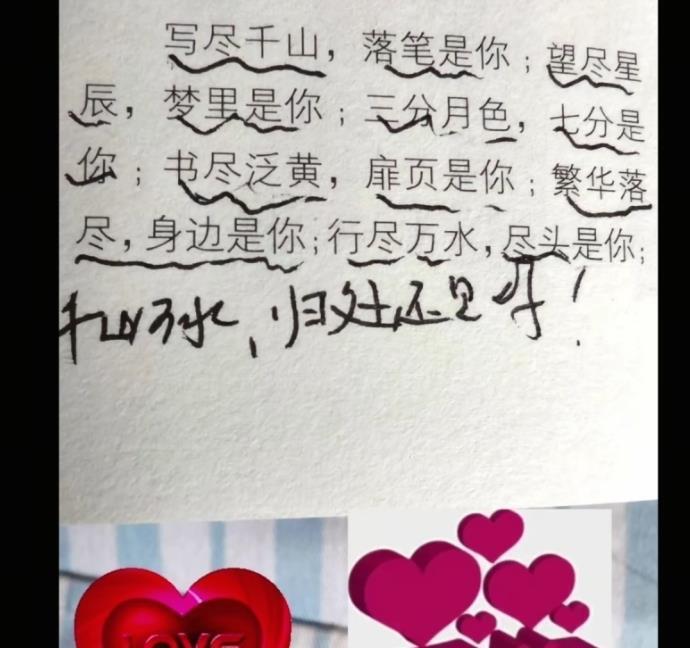 写尽千山，落笔是你；望尽星
辰，梦里是你；三分月色，七分是
你；书尽泛黄，扉页是你；繁华落
尽，身边是你；行尽万水，尽头是你；
千山万水，归处还是你！
LOVE